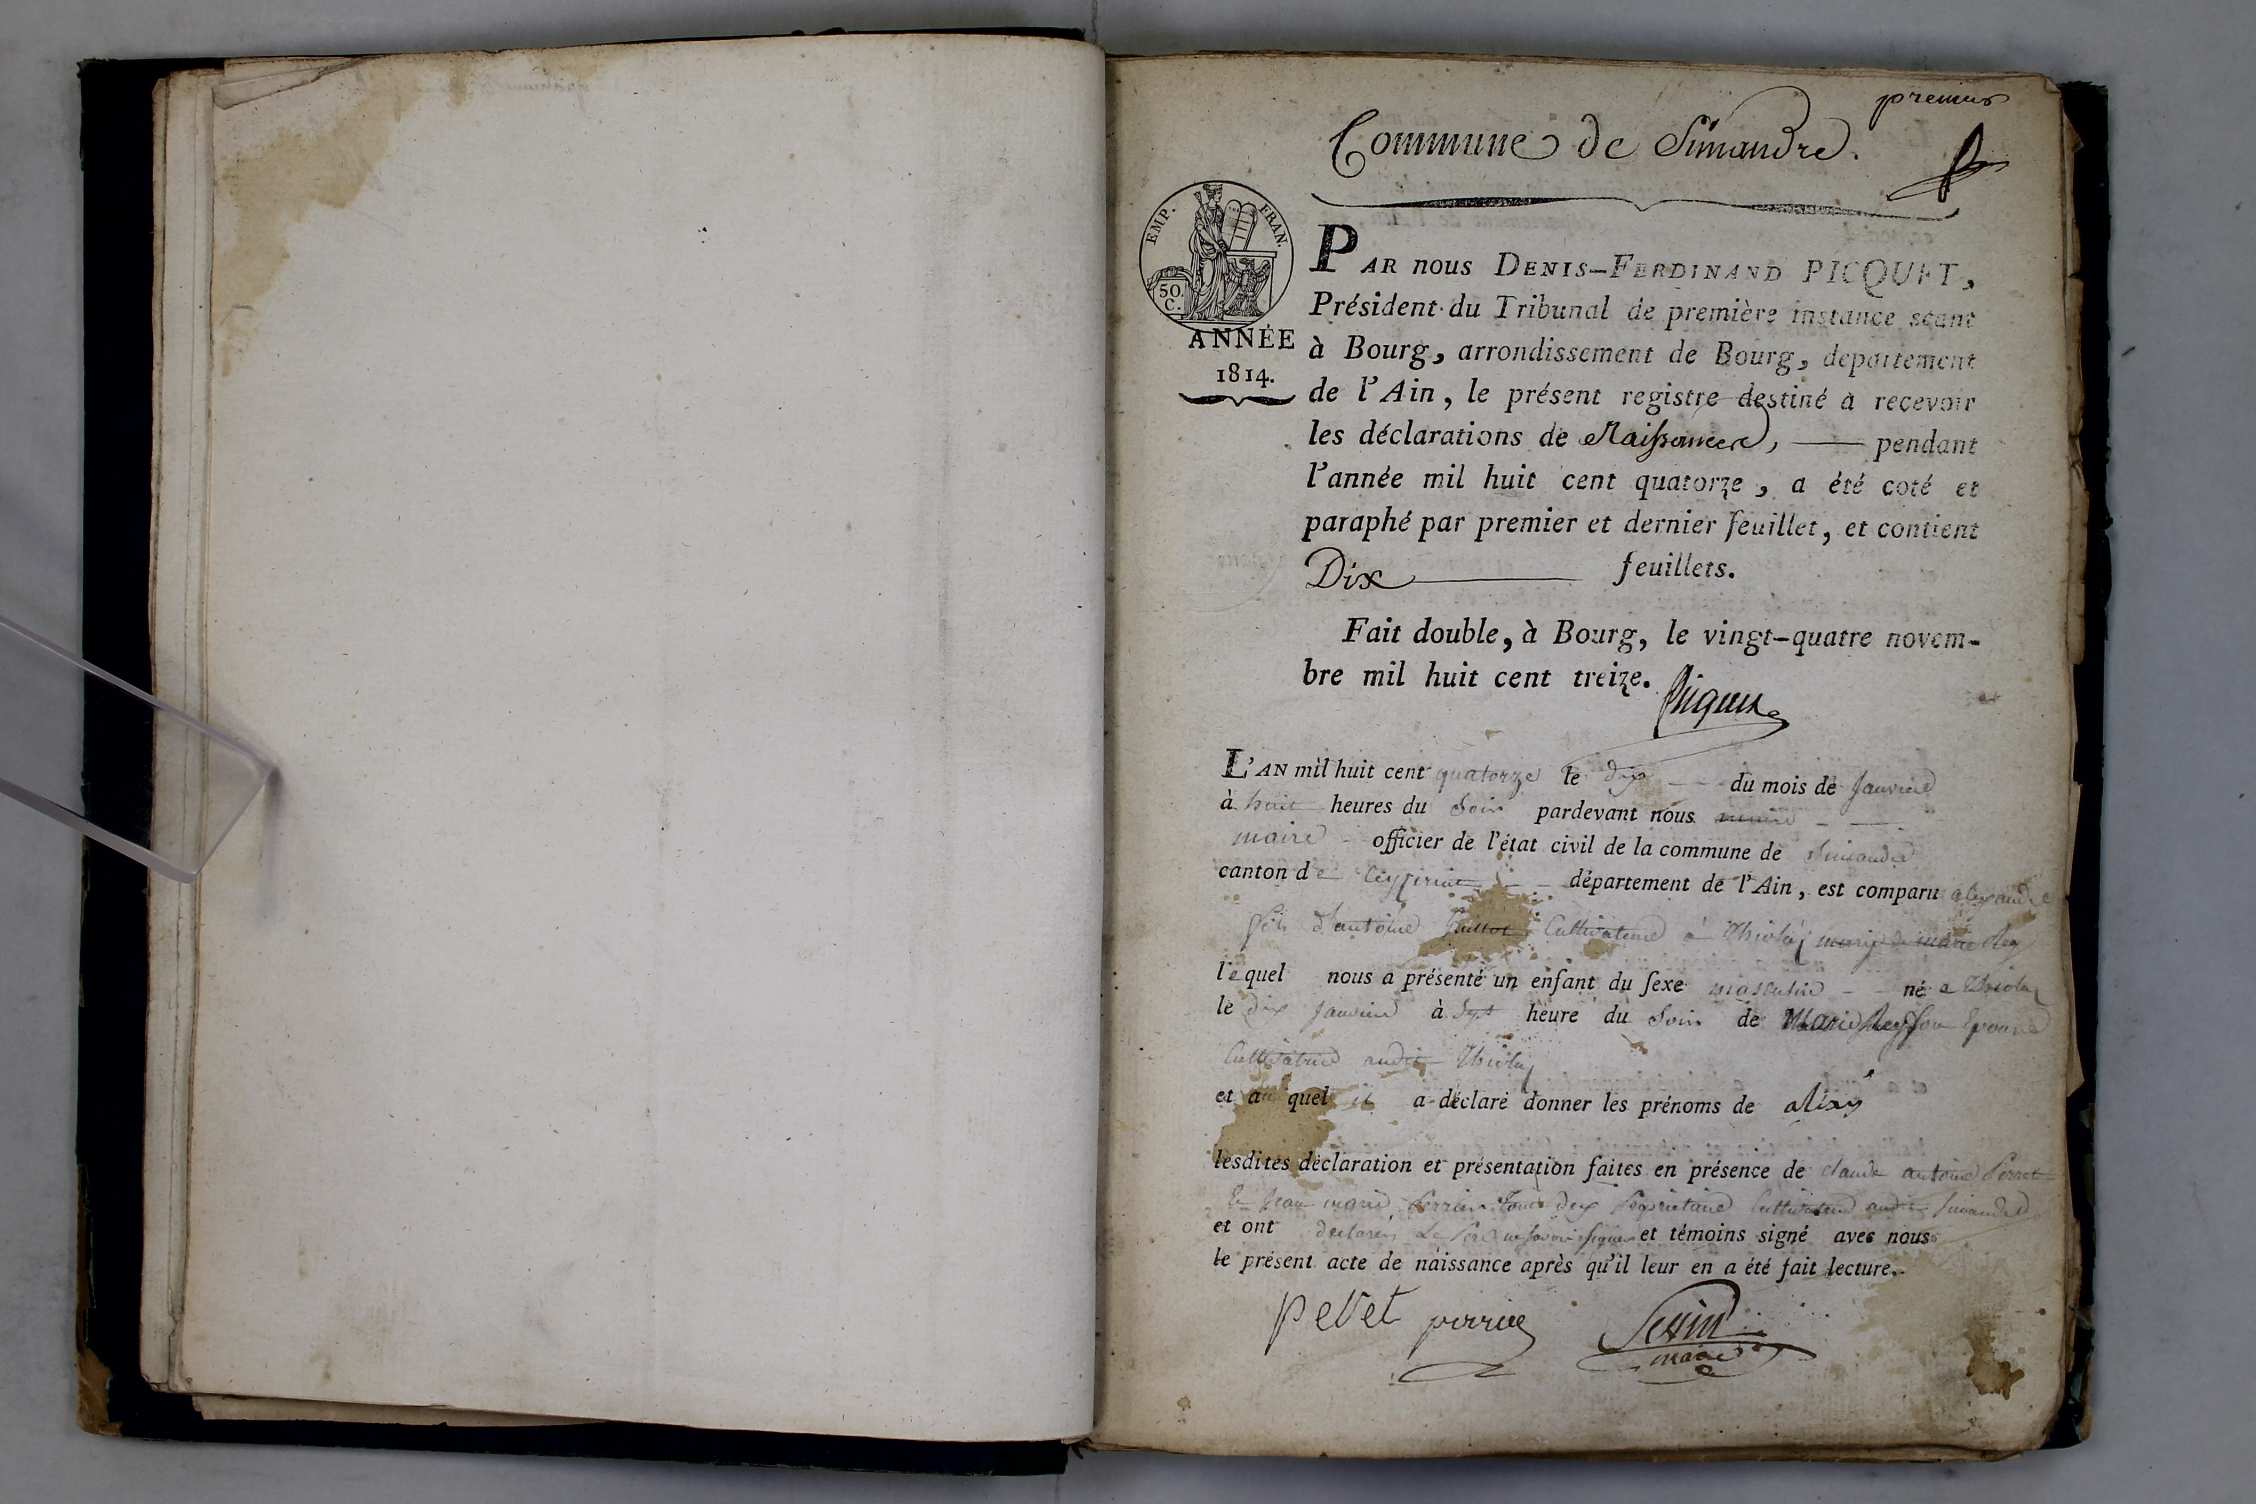 premier
Commune de Simandre.
EMP. FRAN.
50. C.
ANNÉE
1814.
PAR nous DENIS-FERDINAND PICQUET,
Président du Tribunal de première instance séant
à Bourg, arrondissement de Bourg, département
de l'Ain, le présent registre destiné à recevoir
les déclarations de Naissances, pendant
l'année mil huit cent quatorze, a été coté et
paraphé par premier et dernier feuillet, et contient
Dix feuillets.
Fait double, à Bourg, le vingt-quatre novem-
bre mil huit cent treize.
Picquet
L'AN mil huit cent quatorze le dix du mois de Janvier
à huit heures du Soir pardevant nous
maire officier de l'état civil de la commune de Simandre
canton de Ceyzeriat département de l'Ain, est comparu alexandre
fils d'antoine Cultivateur à
lequel nous a présenté un enfant du sexe masculin né a
le dix Janvier à Sept heure du Soir de Marie Son Epouse
Cultivatrice audit
et auquel il a déclaré donner les prénoms de alixis
lesdites déclaration et présentation faites en présence de claude antoine Perret
Et Jean marie Perrin Tous deux Proprietaire Cultivateur audit Simandre
et ont declaré Le Pere ne Savoir Signer et témoins signé avec nous
le présent acte de naissance après qu'il leur en a été fait lecture.
peret perrin
maire